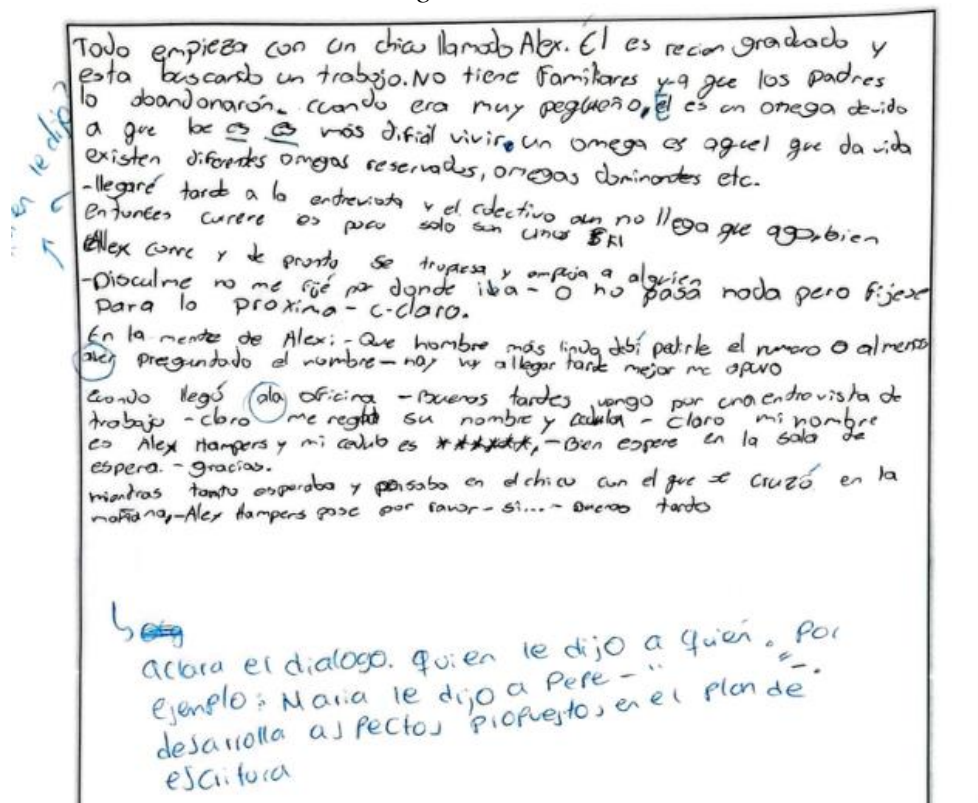 Todo empieza con un chico llamado Alex. Él es recien graduado y
esta buscando un trabajo. No tiene Familiares ya que los padres
lo abandonarón. cuando era muy pegueño, él es un omega devido
a que be es es más dificil vivir. un omega es aquel que da vida
existen diferentes omegas reservados, omegas dominantes etc.
-llegaré tarde a la entrevista y el colectivo aun no llega que agobien
entunces correre es poco solo sun unos 5 Kl
Alex corre y de pronto se tropesa y empuja a alguien
-Disculme no me fijé por donde iba - O no pasa nada pero fijese
para lo proxima - c-claro.
En la mente de Alex: - Que hombre más lindo debí pedirle el numero o almenos
aver preguntado el nombre - no, voy allegar tarde mejor me apuro
cuando llegó ala oficina - Buenos tardes vengo por una entrevista de
trabajo - claro me regala su nombre y cedula - claro mi nombre
es Alex Hampers y mi cedula es ******, - Bien espere en la sala de
espera. - gracias.
mientras tanto esperaba y pensaba en el chico con el que se cruzó en la
mañana, -Alex Hampers pase por favor - si... - Buenas tardes
le dijo?
aclara el dialogo. quien le dijo a quien. Por
ejemplo: Maria le dijo a Pepe - " " -.
desarrolla aspectos propuestos en el plan de
escritura